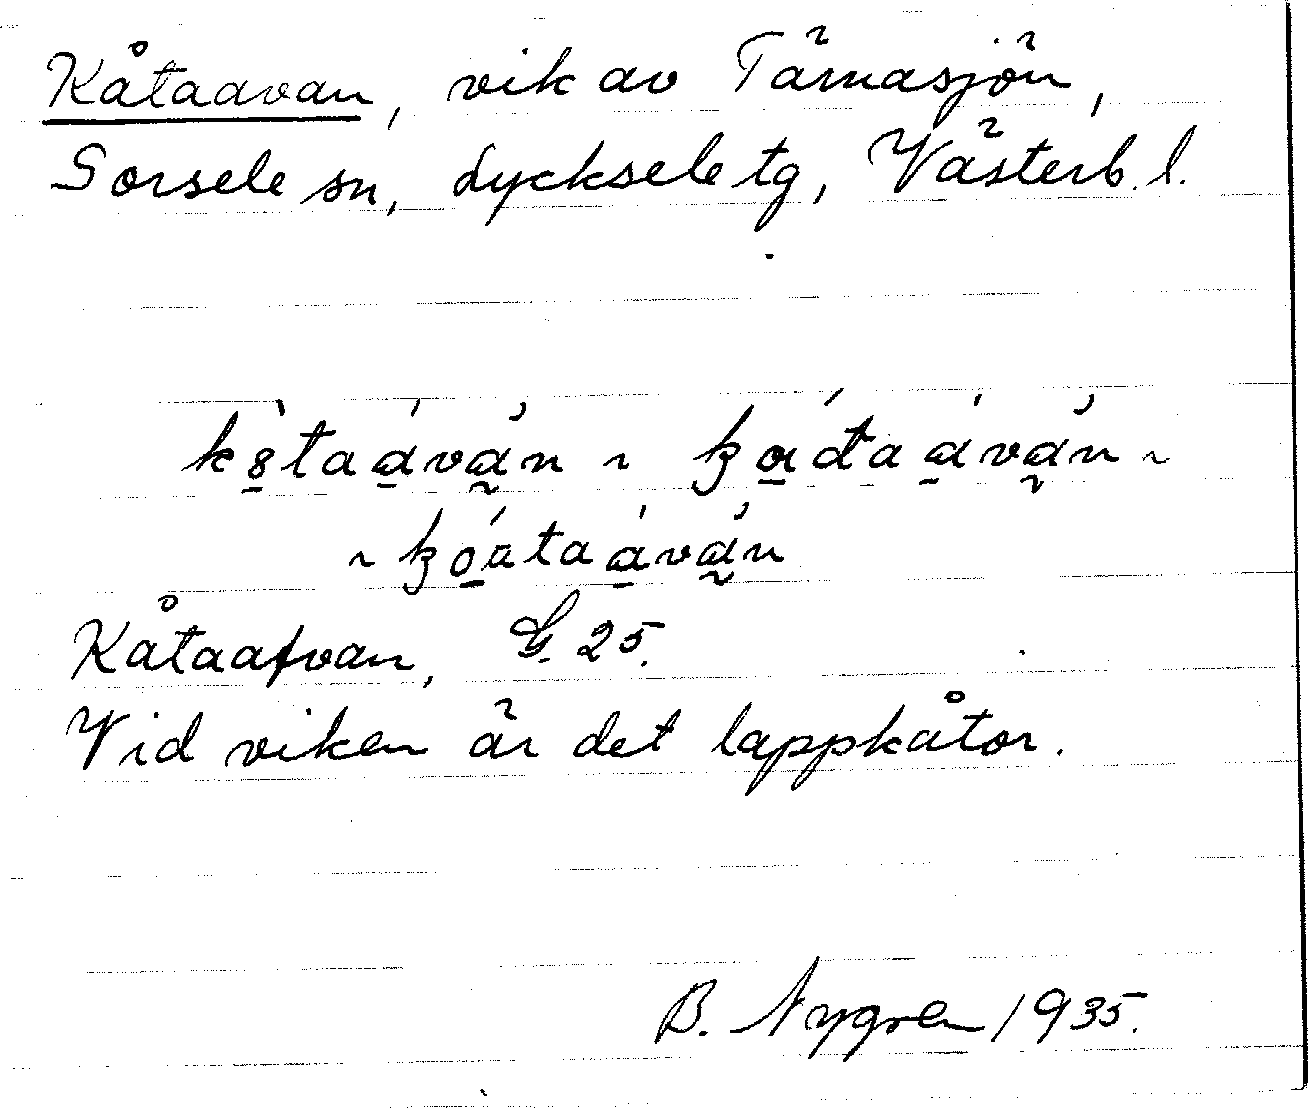 Kåtaavan, vik av Tärnasjön,
Sorsele sn, Lycksele tg, Västerb. l.
Kåtaafvan, G. 25.
Vid viken är det lappkåtor.
B. Nygren 1935.